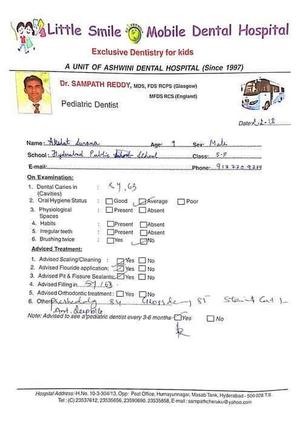 Little Smile Mobile Dental Hospital
Exclusive Dentistry for kids
A UNIT OF ASHWINI DENTAL HOSPITAL (Since 1997)
Dr. SAMPATH REDDY, MDS, FDS RCPS (Glasgow)
MFDS RCS (England)
Pediatric Dentist
Date
Name: Age: 9 Sex: Male
School: Hyderabad Public School Class:
E-mail: Phone:
On Examination:
1. Dental Caries in : 84, 63
(Cavities)
2. Oral Hygiene Status : Good Average Poor
3. Physiological : Present Absent
Spaces
4. Habits : Present Absent
5. Irregular teeth : Present Absent
6. Brushing twice : Yes No
Adviced Treatment:
1. Advised Scaling/Cleaning : Yes No
2. Advised Flouride application: Yes No
3. Advised Pit & Fissure Sealants: Yes No
4. Advised Filling in 84, 63
5. Advised Orthodontic treatment: Yes No
6. Other
Note: Advised to see a pediatric dentist every 3-6 months- Yes No
Hospital Address: H.No. 10-3-304/13, Opp: Post Office, Humayunnagar, Masab Tank, Hyderabad - 500 028 T.S.
Tel: (C) 23537612, 23535656, 23590690, 23535858, E-mail: sampathcheruku@yahoo.com